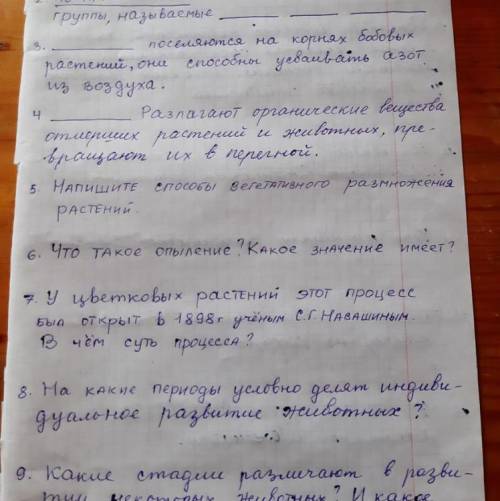 группы, называемые ____ ____ ____
3. ________ поселяются на корнях бобовых
растений, они способны усваивать азот
из воздуха.
4 ________ Разлагают органические вещества
отмерших растений и животных, пре-
вращают их в перегной.
5. Напишите способы вегетативного размножения
растений.
6. Что такое опыление? Какое значение имеет?
7. У цветковых растений этот процесс
был открыт в 1898г учёным С.Г. Навашиным.
В чём суть процесса?
8. На какие периоды условно делят индиви-
дуальное развитие животных?
9. Какие стадии различают в разви-
тии некоторых животных? И какое